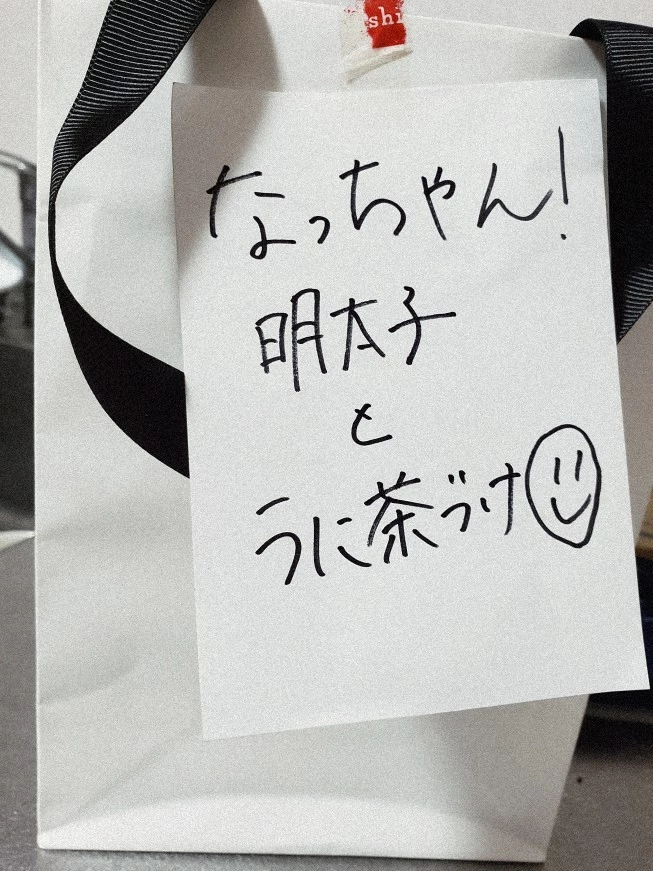 shi
なっちゃん!
明太子
と
うに茶づけ